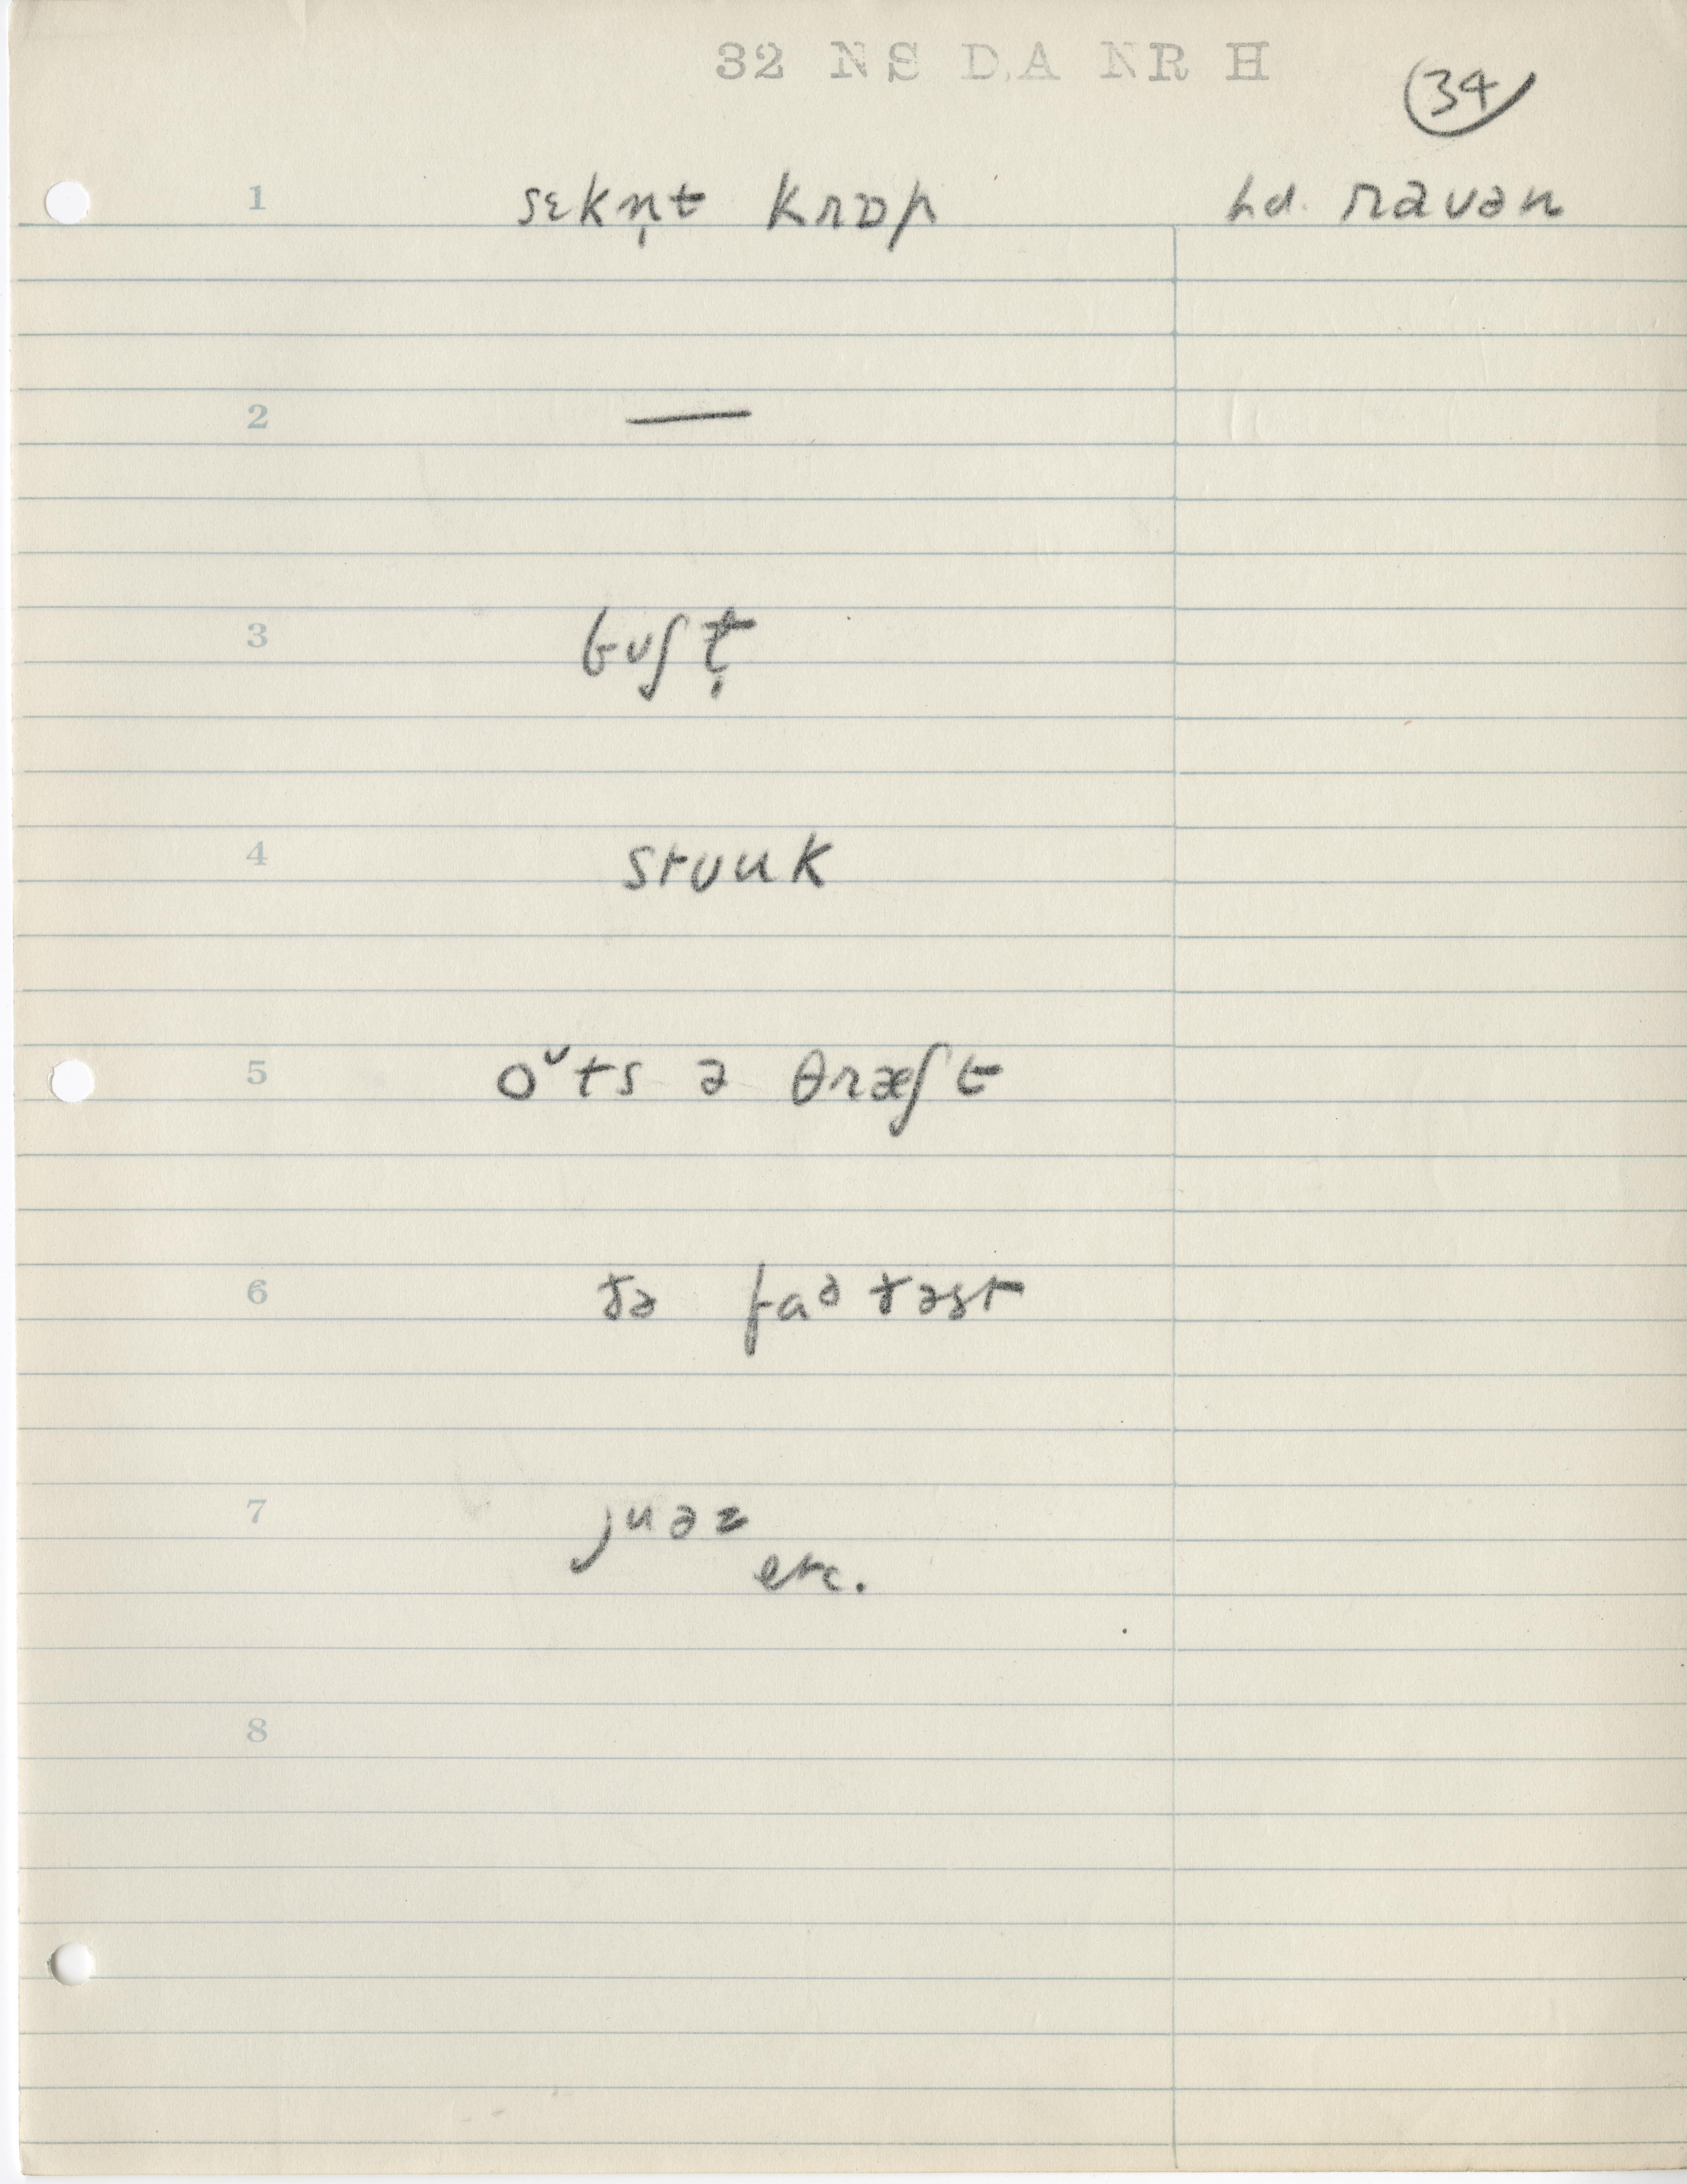 32 NS D.A NR H
34
1 sɛkn̩t krɒp hd. ravən
2 —
3 bʊʃt̬
4 stʊuk
5 oᵛts ə θræʃt
6 ðə faᵊðəst
7 juəz
etc.
8